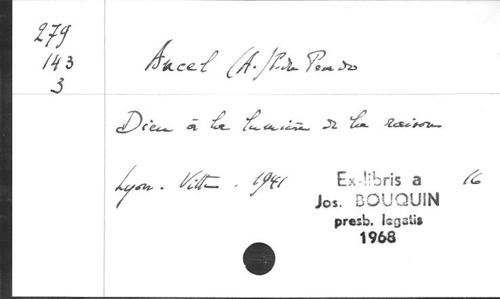 279
143
3
Ancel (A.)
Dieu à la lumière de la raison
Lyon. Vitte. 1941
16
Ex-libris a
Jos. BOUQUIN
presb. legatis
1968